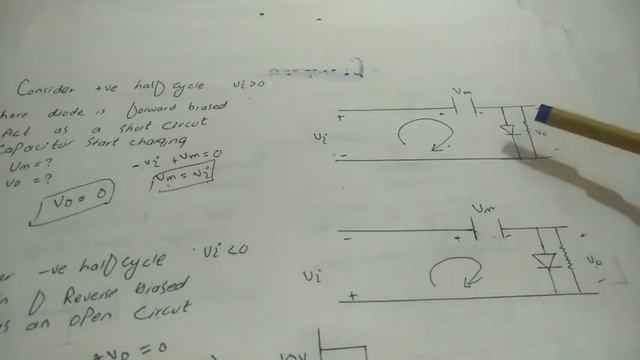 Consider +ve half cycle Vi>0
here diode is forward biased
Act as a short circut
capacitor start charging
Vm = ?
Vo = ?
-Vi + Vm = 0
Vm = Vi
Vo = 0
-ve half cycle Vi < 0
D Reverse biased
as an open circut
+Vo = 0
Vm
+
+
-
Vi
-
Vo
-
Vm
-
+
-
+
Vi
+
Vo
-
10V